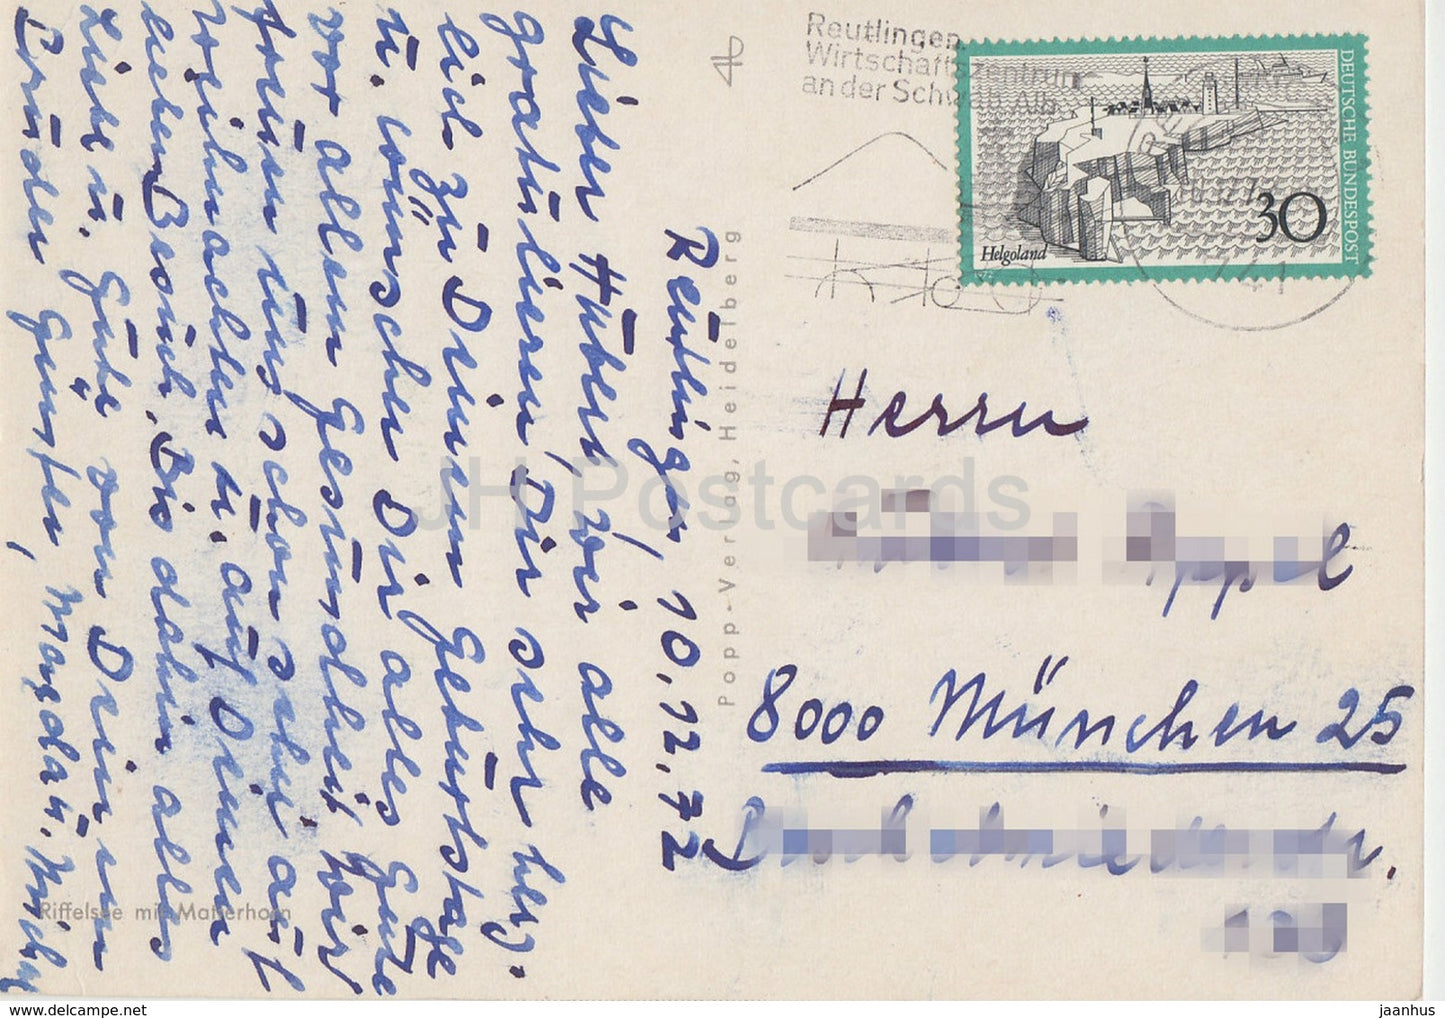 Reutlingen, 10.12.72
Lieber Hubert, wir alle
gratulieren Dir sehr herz-
lich zu Deinem Geburtstage
u. wünschen Dir alles Gute
vor allem Gesundheit. Wir
freuen uns schon sehr auf
Weihnachten u. auf Deinen
lieben Besuch. Bis dahin alles
Liebe u. Gute von Deinem
Bruder Günter, Magda u. Michy
Riffelsee mit Matterhorn
Popp-Verlag, Heidelberg
Reutlingen
Wirtschaftszentrum
an der Schwäb. Alb
DEUTSCHE BUNDESPOST
Helgoland
30
741
Herrn
8000 München 25
JH Postcards
www.delcampe.net
jaanhus